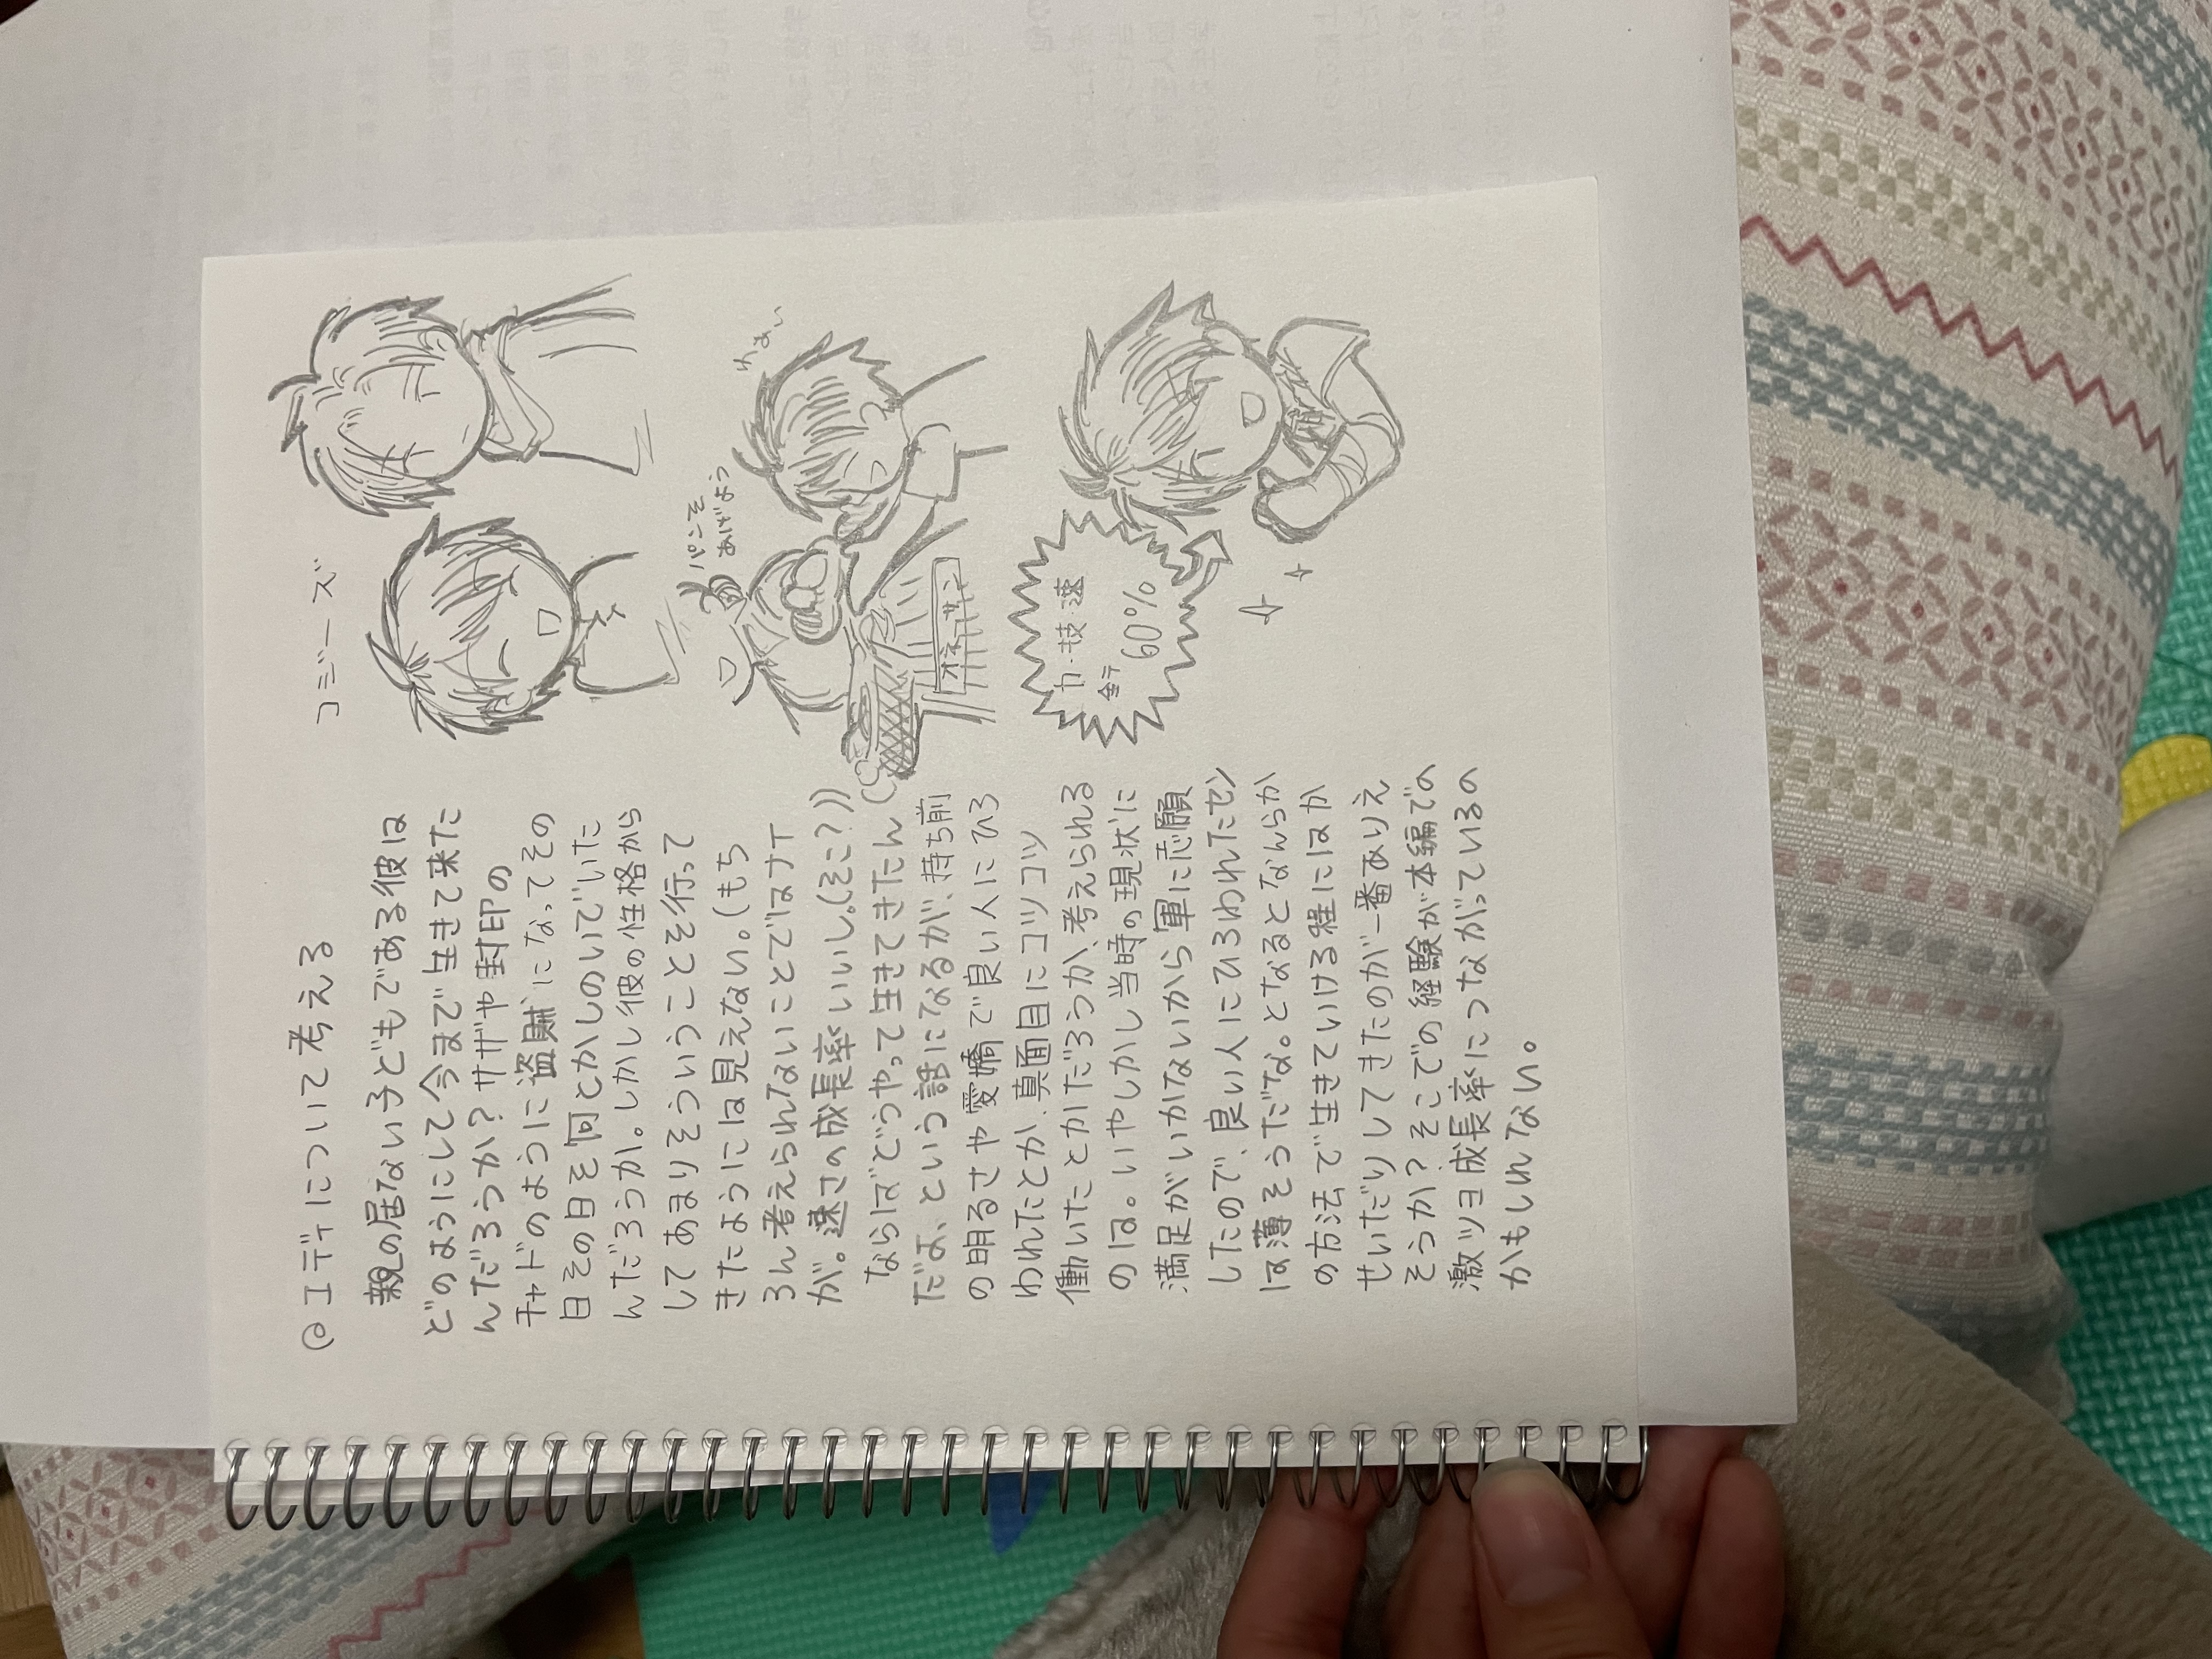 @エディについて考える
親の居ない子どもである彼は
どのようにして今まで生きて来た
んだろうか?サザや封印の
チャドのように盗賊になってその
日その日を何とかしのいでいた
んだろうか。しかし彼の性格から
してあまりそういうことを行って
きたようには見えない。(もち
ろん考えられないことではナイ
が。速さの成長率いいし。(そこ?))
ならばどうやって生きてきたん
だよ、という話になるが、持ち前
の明るさや愛嬌で良い人にひろ
われたとか、真面目にコツコツ
働いたとかだろうか、考えられる
のは。いやしかし当時の現状に
満足がいかないから軍に志願
したので、良い人にひろわれたセン
は薄そうだな。となるとなんらか
の方法で生きていける程にはか
せいだりしてきたのが一番ありえ
そうか?そこでの経験が本編での
激ツヨ成長率につながっているの
かもしれない。
コミジーズ
パンを
あげよう
わぁい
オネダン
力・技・速
全テ
60%